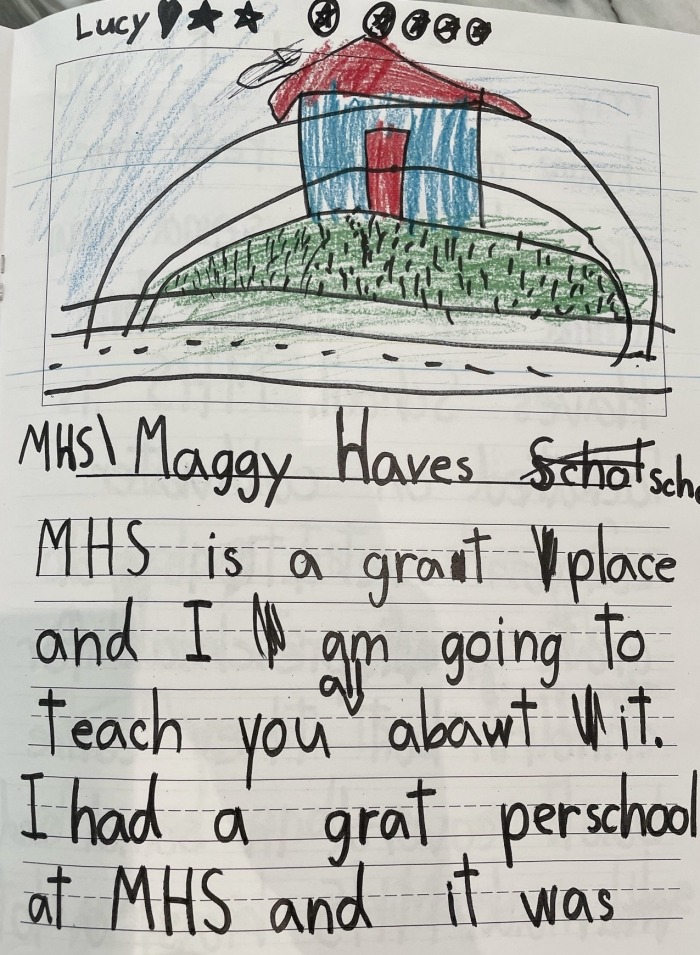 Lucy
MHS\ Maggy Haves Schol
MHS is a grat place
and I am going to
all
teach you abawt it.
I had a grat perschool
at MHS and it was